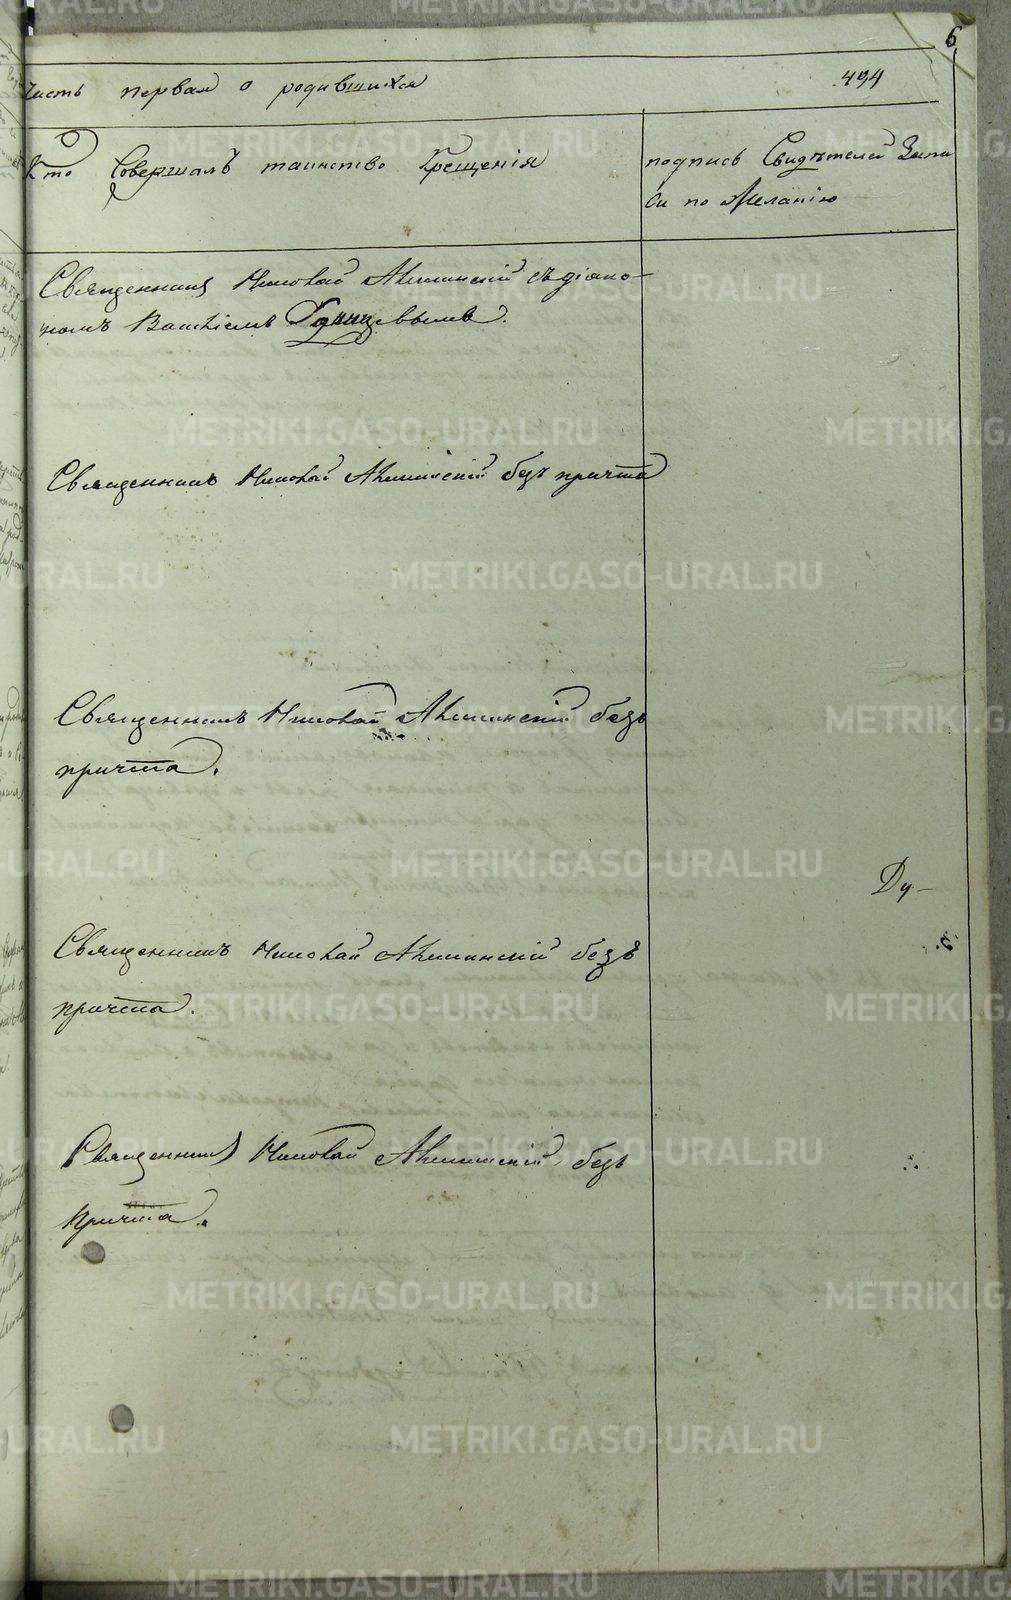 6
Часть первая о родившихся 494
Кто Совершалъ таинство Крещенія
подпись Свидѣтелей Запи
си по Желанію
Священникъ Николай Акишинскій съ діако-
номъ Василіемъ
Священникъ Николай Акишинскій безъ причта
Священникъ Николай Акишинскій безъ
причта.
Ду-
Священникъ Николай Акишинскій безъ
причта.
Священникъ Николай Акишинскій безъ
причта.
METRIKI.GASO-URAL.RU